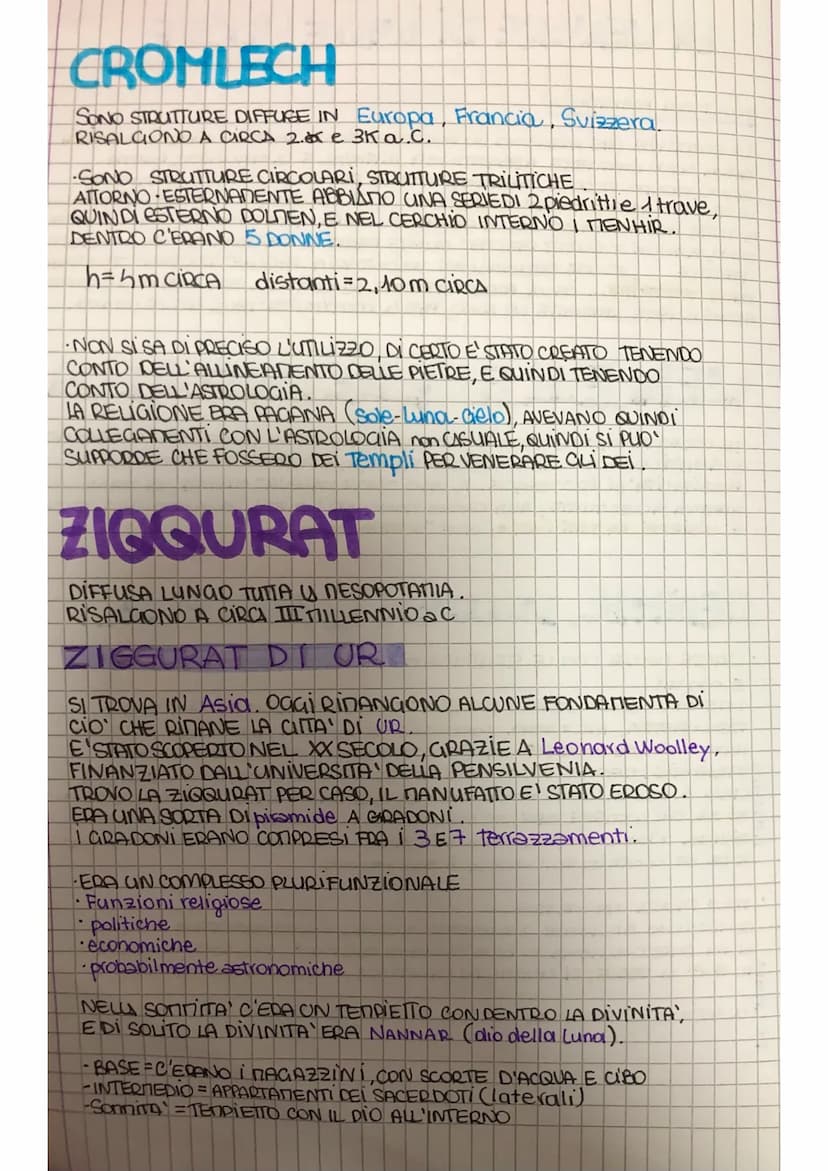 CROMLECH
SONO STRUTTURE DIFFUSE IN Europa, Francia, Svizzera.
RISALGONO A CIRCA 2. e 3K a.C.
·SONO STRUTTURE CIRCOLARI, STRUTTURE TRILITICHE.
ATTORNO·ESTERNAMENTE ABBIAMO UNA SERIE DI 2 piedritti e 1 trave,
QUINDI ESTERNO DOLMEN, E NEL CERCHIO INTERNO I MENHIR.
DENTRO C'ERANO 5 DONNE.
h=4m CIRCA distanti=2,10m CIRCA
·NON SI SA DI PRECISO L'UTILIZZO, DI CERTO E' STATO CREATO TENENDO
CONTO DELL'ALLINEAMENTO DELLE PIETRE, E QUINDI TENENDO
CONTO DELL'ASTROLOGIA.
LA RELIGIONE ERA PAGANA (Sole-Luna-Cielo), AVEVANO QUINDI
COLLEGAMENTI CON L'ASTROLOGIA non CASUALE, QUINDI SI PUO'
SUPPORRE CHE FOSSERO DEI Templi PER VENERARE GLI DEI.
ZIQQURAT
DIFFUSA LUNGO TUTTA LA MESOPOTAMIA.
RISALGONO A CIRCA III MILLENNIO a C
ZIGGURAT DI UR
SI TROVA IN Asia. OGGI RIMANGONO ALCUNE FONDAMENTA DI
CIO' CHE RIMANE LA CITTA' DI UR.
E' STATO SCOPERTO NEL XX SECOLO, GRAZIE A Leonard Woolley,
FINANZIATO DALL'UNIVERSITA' DELLA PENSILVENIA.
TROVO LA ZIQQURAT PER CASO, IL MANUFATTO E' STATO EROSO.
ERA UNA SORTA DI piramide A GRADONI.
I GRADONI ERANO COMPRESI FRA I 3 E 7 terrazzamenti.
·ERA UN COMPLESSO PLURIFUNZIONALE
· Funzioni religiose
· politiche
· economiche
· probabilmente astronomiche
NELLA SOMMITA' C'ERA UN TEMPIETTO CON DENTRO LA DIVINITA',
E DI SOLITO LA DIVINITA' ERA NANNAR (dio della Luna).
- BASE = C'ERANO I MAGAZZINI, CON SCORTE D'ACQUA E CIBO
- INTERMEDIO = APPARTAMENTI DEI SACERDOTI (laterali)
- SOMMITA' = TEMPIETTO CON IL DIO ALL'INTERNO